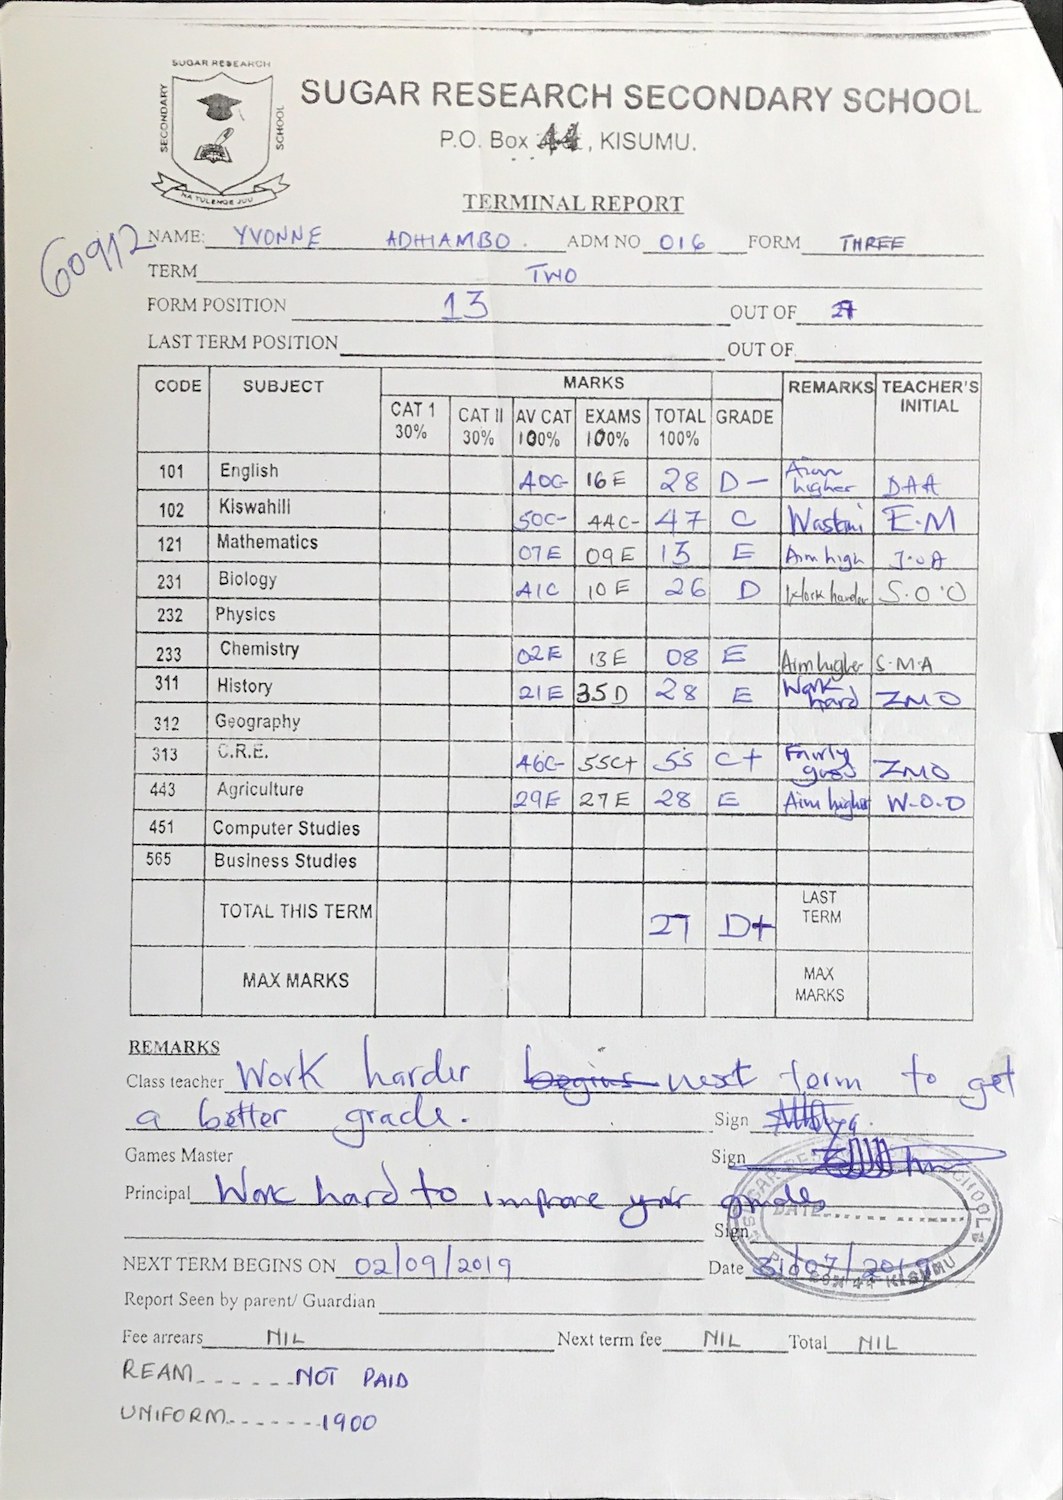 SUGAR RESEARCH
SECONDARY
SCHOOL
NA TULENGE JUU
SUGAR RESEARCH SECONDARY SCHOOL
P.O. Box 44, KISUMU.
TERMINAL REPORT
60912
NAME: YVONNE ADHIAMBO. ADM NO 016 FORM THREE
TERM TWO
FORM POSITION 13 OUT OF
LAST TERM POSITION OUT OF
CODE SUBJECT MARKS REMARKS TEACHER'S INITIAL
CAT 1 30% CAT II 30% AV CAT 100% EXAMS 100% TOTAL 100% GRADE
101 English 40C- 16E 28 D- Aim higher DAA
102 Kiswahili 50C- 44C- 47 C Wastani E.M
121 Mathematics 07E 09E 13 E Aim high J.O.A
231 Biology 41C 10E 26 D Work harder S.O.O
232 Physics
233 Chemistry 02E 13E 08 E Aim higher S.M.A
311 History 21E 35D 28 E Work hard ZMO
312 Geography
313 C.R.E. 46C- 55C+ 55 C+ Fairly good ZMO
443 Agriculture 29E 27E 28 E Aim higher W.O.O
451 Computer Studies
565 Business Studies
TOTAL THIS TERM 27 D+ LAST TERM
MAX MARKS MAX MARKS
REMARKS
Class teacher Work harder begins next term to get
a better grade. Sign
Games Master Sign
Principal Work hard to improve your grades
Sign
NEXT TERM BEGINS ON 02/09/2019 Date 31/07/2019
Report Seen by parent/ Guardian
Fee arrears NIL Next term fee NIL Total NIL
REAM.......NOT PAID
UNIFORM.......1900
SUGAR RESEARCH SCHOOL
DATE
BOX 44 KISUMU